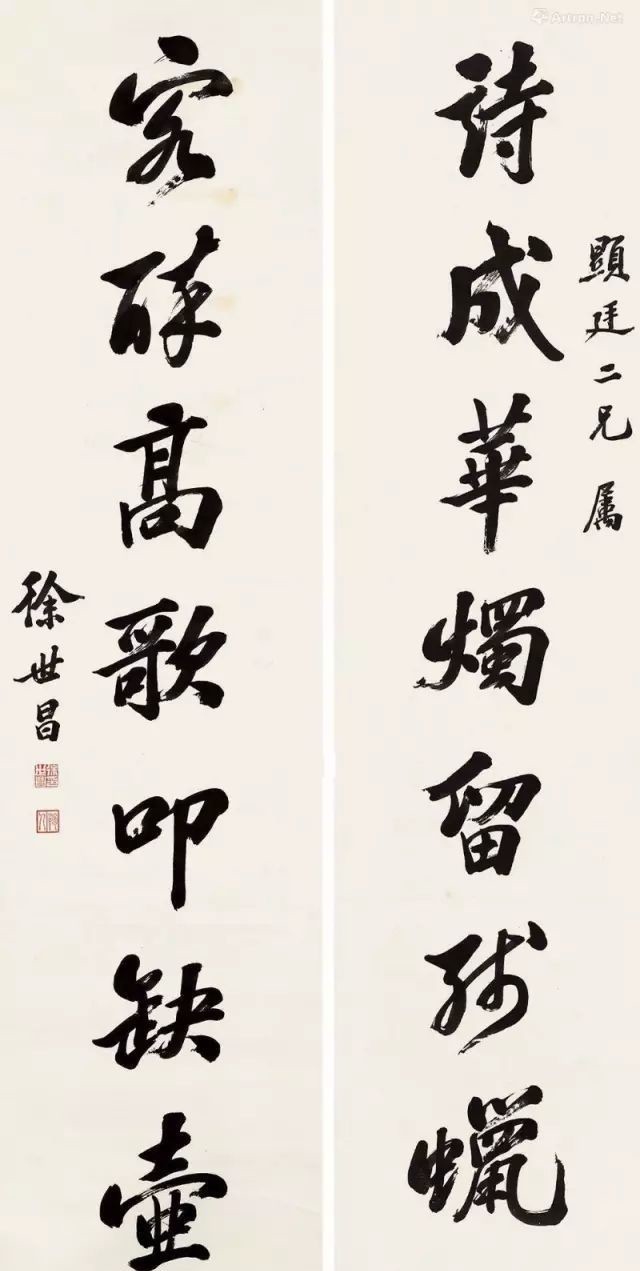 顯廷二兄属
詩成華燭留殘蠟
客醉高歌叩缺壺
徐世昌
Artron.Net